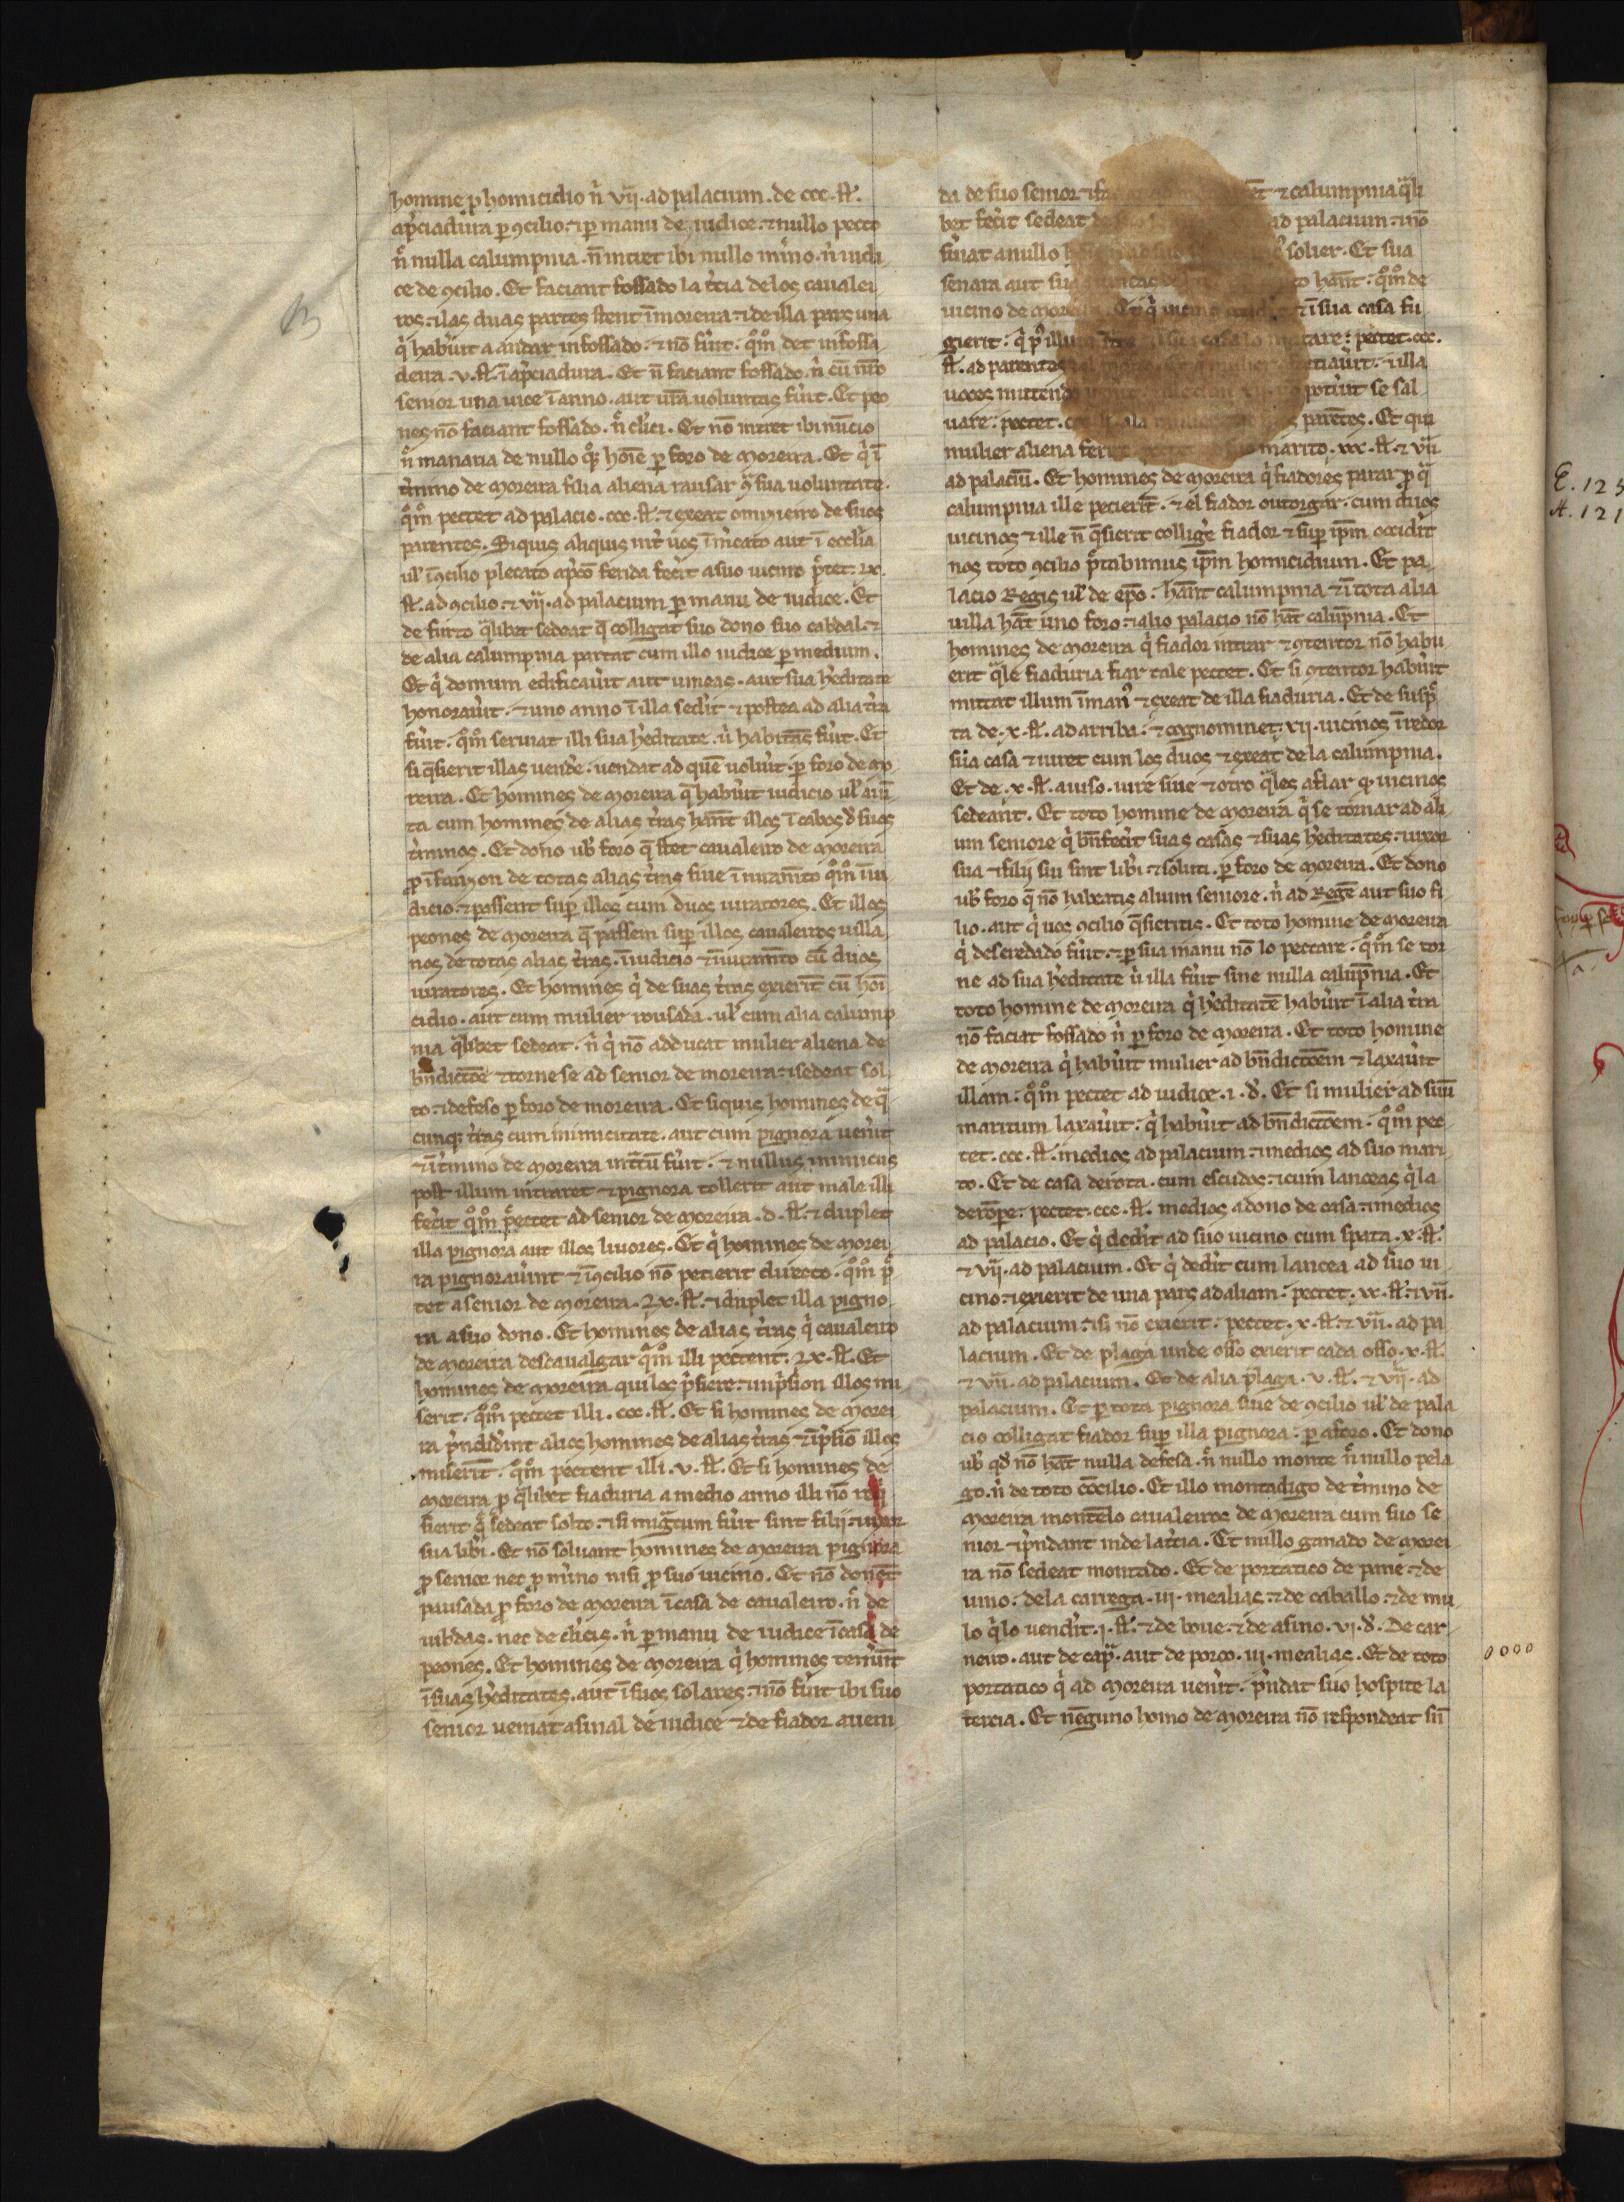 homine ꝓ homicidio n̄ vij. ad palacium. de ccc. st̄.
ap̄ciadura ꝑ ꝯcilio. ⁊ ꝑ manu de iudice. ⁊ nullo pecto
n̄ nulla calumpnia. n̄ intret ibi nullo m̄ino. n̄ iudi
ce de ꝯcilio. Et faciant fossado la t̄cia de los cauallei
ros. ⁊ las duas partes stent ī moreira. ⁊ de illa pars una
q̇ habūit a andar in fossado. ⁊ nō fūit. q̊m̊ det in fossa
deira. v. st̄. ī ap̄ciadura. Et n̄ faciant fossado. n̄ cū n̄ro
senior una uice ī anno. aut ur̄a uoluntas fūit. Et peo
nes nō faciant fossado. n̄ cl̄ici. Et nō intret ibi nūcio
n̄ manaria de nullo q̨ꝫ hoīe ꝑ foro de moreira. Et q̇ ī
t̄mino de moreira filia aliena rausar ꝯ̄ sua uoluntate.
q̊m̊ pectet ad palacio. ccc. st̄. ⁊ exeat omizieiro de suos
parentes. Siquis aliquis int̄ uos ī mc̄ato aut ī eccl̄ia
ul̄ ī ꝯcilio plegato ap̄co ferida fecit a suo uicino p̄tet. lx.
st̄. ad ꝯcilio. ⁊ vij. ad palacium ꝑ manu de iudice. Et
de furto q̄libet sedeat q̄ colligat suo dono suo cabdal. ⁊
de alia calumpnia partat cum illo iudice ꝑ medium.
Et q̇ domum edificauit aut uineas. aut sua h̄editate
honorauit. ⁊ uno anno ī illa sed̄it ⁊ postea ad alia t̄ra
fūit. q̊m̊ seruiat illi sua h̄editate. ū habitās fūit. Et
si q̄sierit illas uende. uendat ad quē uolūit. ꝑ foro de mo
reira. Et homines de moreira q̄ habūit iudicio ul̄ aiū
ta cum homines de alias t̄ras hān̄t illos ī cabos d̄ suos
t̄minos. Et dono uob̄ foro q̄ stet caualeiro de moreira
ꝓ īfanzon de totas alias t̄ras siue ī iuram̄to q̊m̊ ī iu
dicio. ⁊ passent suꝑ illos cum duos iuratores. Et illos
peones de moreira q̄ passēn suꝑ illos caualeiros uilla
nos de totas alias t̄ras. ī iudicio ⁊ ī iuram̄to cū duos
iuratores. Et homines q̇ de suas t̄ras exierīt cū homi
cidio. aut cum mulier rousada. ul̄ cum alia calump
nia q̄libet sedeat. n̄ q̇ nō adducat mulier aliena de
bn̄dictōe ⁊ torne se ad senior de moreira. ⁊ sedeat sol
to. ⁊ defeso ꝑ foro de moreira. Et siquis homines de q̄
cunqꝫ t̄ras cum inimicitate. aut cum pignora uen̄it
⁊ ī t̄mino de moreira intrātū fūit. ⁊ nullus inimicus
post illum intraret ⁊ pignora tollerit aut male illi
fecit q̊m̊ pectet ad senior de moreira. d. st̄. ⁊ duplet
illa pignora aut illos liuores. Et q̇ homines de morei
ra pignorauīnt ⁊ ī ꝯcilio nō petierit directo. q̊m̊ p̄
tet a senior de moreira. lx. st̄. ⁊ duplet illa pigno
ra a suo dono. Et homines de alias t̄ras q̇ caualeiro
de moreira descaualgar q̊m̊ illi pectent. lx. st̄. Et
homines de moreira qui los p̄siere. ⁊ in p̄sion illos mi
serit. q̊m̊ pectet illi. ccc. st̄. Et si homines de morei
ra p̄ndid̄int alios homines de alias t̄ras ⁊ ī p̄siō illos
miserīt. q̊m̊ pectent illi. v. st̄. Et si homines de
moreira ꝓ q̄libet fiaduria a medio anno illi nō re
sierit q̄ sedeat solto. ⁊ si migtum fūit sint filij. ⁊ uxor
sua lib̄i. Et nō soluant homines de moreira pignora
ꝓ senior nec ꝓ m̄ino nisi ꝓ suo uicino. Et nō donēt
pausada ꝓ foro de moreira ī casa de caualeiro. n̄ de
uibdas. nec de cl̄icis. n̄ ꝑ manu de iudice ī casa de
peones. Et homines de moreira q̇ homines tenūīt
ī suas h̄editates. aut ī suos solares. ⁊ nō fūit ibi suo
senior ueniat a sinal de iudice ⁊ de fiador aueni
da de suo senior ⁊ ēt ⁊ calumpnia q̄li
bet fecit sedeat ad palacium. ⁊ nō
sūiat a nullo solier. Et sua
senara aut hān̄t. q̊m̊ de
uicino de ⁊ ī sua casa fu
gierit. q̇ matare. pectet. ccc.
st̄. ad parentes ⁊ illa
uoces mittendo potūit se sal
uare. pectet. parētes. Et qui
mulier aliena marito. xxx. st̄. ⁊ vij
ad palaciū. Et homines de moreira q̇ fiadores parar ꝓ q̄
calumpnia ille pecierīt. ⁊ el fiador outorgar. cum duos
uicinos ⁊ ille n̄ q̄sierit collige fiador ⁊ suꝑ ip̄m occid̄it
nos toto ꝯcilio p̄tabimus ip̄m homicidium. Et pa
lacio Regis ul̄ de ep̄o. hān̄t calumpnia ⁊ ī tota alia
uilla hāt uno foro. ⁊ alio palacio nō hāt calūpnia. Et
homines de moreira q̇ fiador intrar ⁊ ꝯtentor nō habu
erit q̄le fiaduria fiar tale pectet. Et si ꝯtentor habūit
mittat illum ī man̄ꝰ ⁊ exeat de illa fiaduria. Et de susp̄
ta de. x. st̄. ad arriba. ⁊ cognominet. xii. uicinos ī redor
sua casa ⁊ iuret cum los duos ⁊ exeat de la calumpnia.
Et de. x. st̄. aiuso. iure siue ⁊ otro q̄les aflar ꝙ uicinos
sedeant. Et toto homine de moreira q̇ se tornar ad ali
um seniore q̇ bn̄fecit suas casas ⁊ suas h̄editates. ⁊ uxor
sua ⁊ filij sui sint lib̄i. ⁊ soluti. ꝑ foro de moreira. Et dono
uob̄ foro q̄ nō habeatis alium seniore. n̄ ad Regē aut suo fi
lio. aut q̇ uos ꝯcilio q̄sieritis. Et toto homine de moreira
q̇ deseredado fūit. ⁊ ꝑ sua manu nō lo pectare. q̊m̊ se tor
ne ad sua h̄editate ū illa fūit sine nulla calūpnia. Et
toto homine de moreira q̇ h̄editatē habūit ī alia t̄ra
nō faciat fossado n̄ ꝑ foro de moreira. Et toto homine
de moreira q̇ habūit mulier ad bn̄dictōem ⁊ laxauit
illam. q̊m̊ pectet ad iudice. i. d̄. Et si mulier ad suū
maritum laxauit. q̇ habūit ad bn̄dictōem. q̊m̊ pec
tet. ccc. st̄. medios ad palacium. ⁊ medios ad suo mari
to. Et de casa derota. cum escudos. ⁊ cum lanceas q̇ la
derōpe. pectet. ccc. st̄. medios a dono de casa. ⁊ medios
ad palacio. Et q̇ ded̄it ad suo uicino cum spata. x. st̄.
⁊ vij. ad palacium. Et q̇ ded̄it cum lancea ad suo ui
cino. ⁊ exierit de una pars ad aliam. pectet. xx. st̄. ⁊ vii.
ad palacium. ⁊ si nō exierit. pectet. x. st̄. ⁊ vii. ad pa
lacium. Et de plaga unde osso exierit cada osso. x. st̄.
⁊ vii. ad palacium. Et de alia plaga. v. st̄. ⁊ vij. ad
palacium. Et ꝑ tota pignora siue de ꝯcilio ul̄ de pala
cio colligat fiador suꝑ illa pignora. ꝑ a foro. Et dono
uob̄ qd̄ nō hāt nulla defesa. n̄ nullo monte n̄ nullo pela
go. n̄ de toto cōcilio. Et illo montadigo de t̄mino de
moreira montēlo caualeiros de moreira cum suo se
nior ⁊ p̄ndant inde la t̄cia. Et nullo ganado de morei
ra nō sedeat montado. Et de portatico de pane. ⁊ de
uino. de la carrega. iij. mealias. ⁊ de caballo. ⁊ de mu
lo q̇ lo uend̄it. j. st̄. ⁊ de boue. ⁊ de asino. vi. d̄. De car
neiro. aut de cap̄. aut de porco. iij. mealias. Et de toto
portatico q̇ ad moreira uen̄it. p̄ndat suo hospite la
tercia. Et nēguno homo de moreira nō respondeat sn̄
E. 125
A. 121